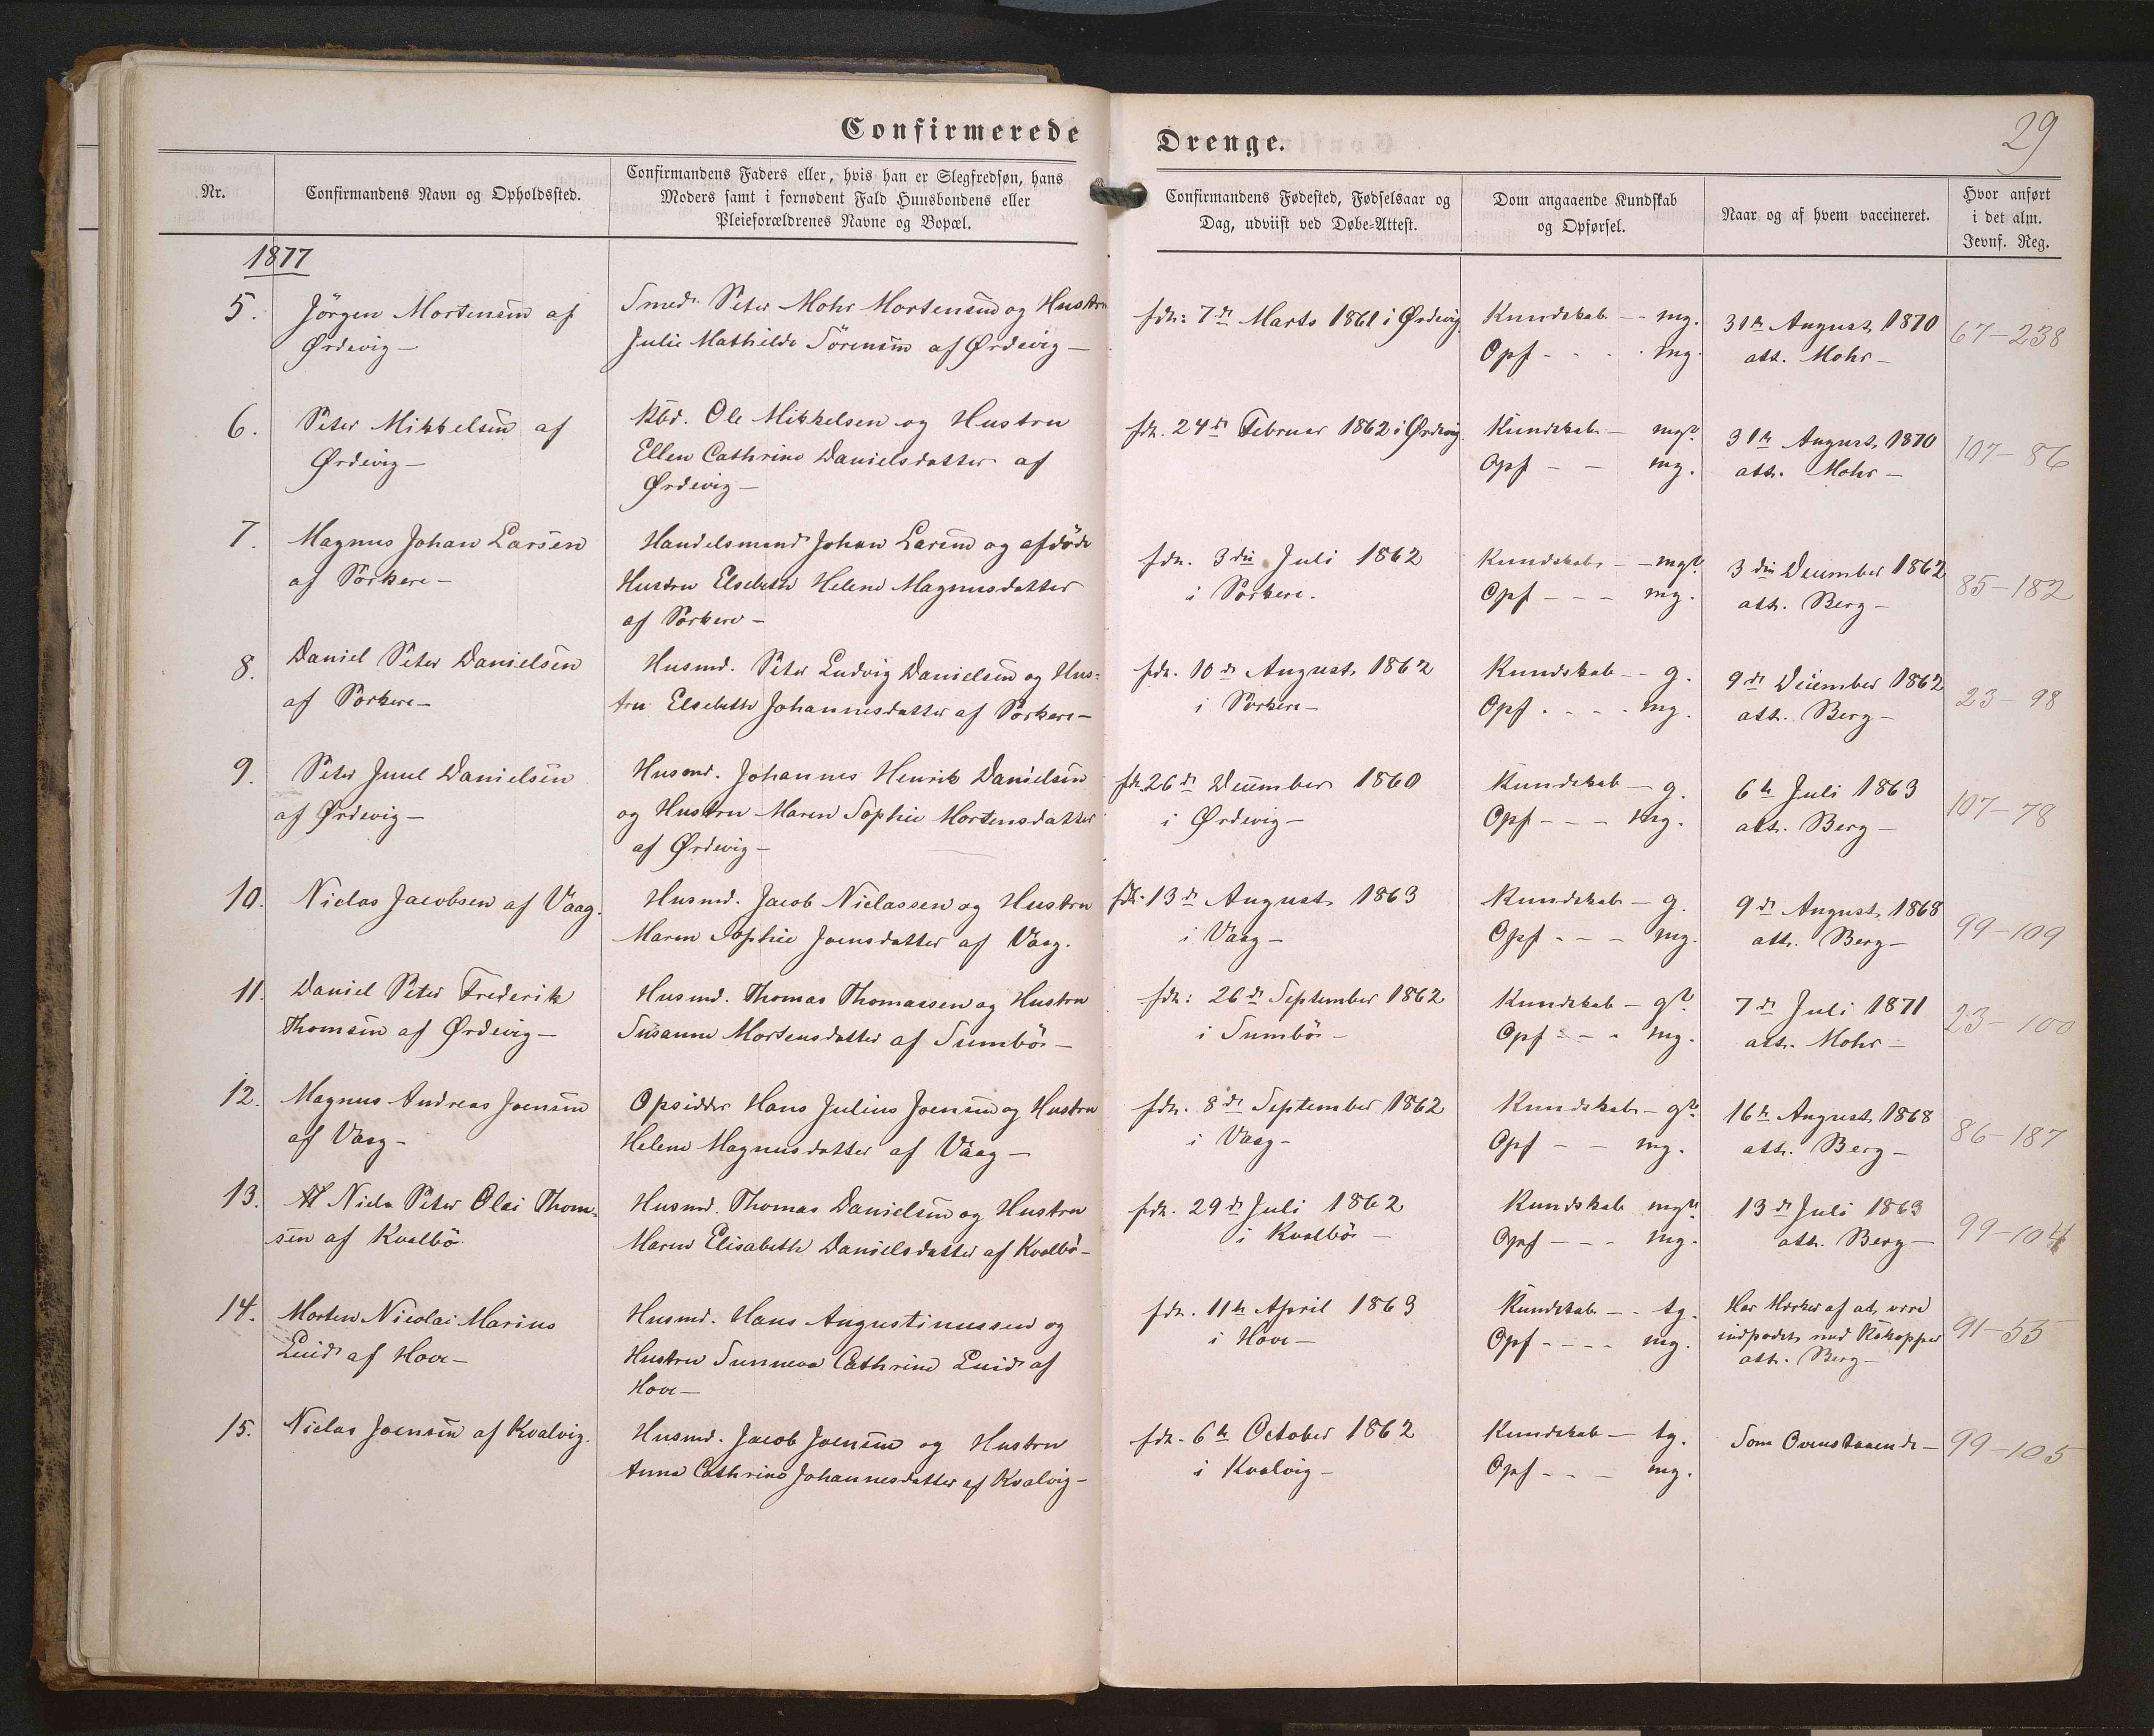 Confirmerede
Drenge.
29
Nr.
Confirmandens Navn og Opholdssted.
Confirmandens Faders eller, hvis han er Slegfredsøn, hans
Moders samt i fornødent Fald Huusbondens eller
Pleieforældrenes Navne og Bopæl.
Confirmandens Fødested, Fødselsaar og
Dag, udviist ved Døbe-Attest.
Dom angaaende Kundskab
og Opførsel.
Naar og af hvem vaccineret.
Hvor anført
i det alm.
Jevnf. Reg.
1877
5.
Jörgen Mortensen af
Ördevig —
Smed Peter Mohr Mortensen og Hustru
Julie Mathilde Sörensen af Ördevig —
fdt: 7de Marts 1861 i Ördevig
Kundskab - - mg.
Opf - - - mg.
31te August 1870
att. Mohr —
67-238
6.
Peter Mikkelsen af
Ördevig —
Kbd. Ole Mikkelsen og Hustru
Ellen Cathrine Danielsdatter af
Ördevig —
fdt. 24de Februar 1862 i Ördevig.
Kundskab — mg?
Opf - - mg.
31te August 1870
att. Mohr —
107-86
7.
Magnus Johan Larsen
af Porkere —
Handelsmand Johan Larsen og afdöde
Hustru Elsebeth Helene Magnusdatter
af Porkere —
fdt. 3die Juli 1862
i Porkere.
Kundskab - - mg?
Opf - - - mg.
3die December 1862
att. Berg —
85-182
8.
Daniel Peter Danielsen
af Porkere —
Husmd. Peter Ludvig Danielsen og Hus-
tru Elsebeth Johannesdatter af Porkere —
fdt. 10de August 1862
i Porkere —
Kundskab - - g.
Opf - - - mg.
9de December 1862
att. Berg —
23-98
9.
Peter Juul Danielsen
af Ördevig —
Husmd. Johannes Henrik Danielsen
og Hustru Maren Sophie Mortensdatter
af Ördevig —
fdt. 26de December 1860
i Ördevig —
Kundskab — g.
Opf - - - mg.
6te Juli 1863
att. Berg —
107-78
10.
Niclas Jacobsen af Vaag.
Husmd. Jacob Niclassen og Hustru
Maren Sophie Joensdatter af Vaag.
fdt. 13de August 1863
i Vaag —
Kundskab — g.
Opf - - - mg.
9de August 1868
att. Berg —
99-109
11.
Daniel Peter Frederik
Thomsen af Ördevig —
Husmd. Thomas Thomassen og Hustru
Susanne Mortensdatter af Sumbö —
fdt: 26de September 1862
i Sumbö —
Kundskab — g?
Opf - - - mg.
7de Juli 1871
att. Mohr —
23-100
12.
Magnus Andreas Joensen
af Vaag —
Opsidder Hans Julius Joensen og Hustru
Helene Magnusdatter af Vaag —
fdt. 8de September 1862
i Vaag —
Kundskab — g?
Opf - - mg.
16te August 1868
att. Berg —
86-187
13.
Niels Peter Olai Thom-
sen af Kvalbö.
Husmd. Thomas Danielsen og Hustru
Maren Elisabeth Danielsdatter af Kvalbö —
fdt. 29de Juli 1862
i Kvalbö —
Kundskab mg?
Opf - - - mg.
13de Juli 1863
att. Berg —
99-104
14.
Morten Nicolai Marius
Luid af Hove —
Husmd. Hans Augustinussen og
Hustru Sunneva Cathrine Luid af
Hove —
fdt. 11te April 1863
i Hove —
Kundskab - - tg.
Opf - - - - mg.
Har Mærker af at være
indpodet med Kokopper
att. Berg —
91-55
15.
Niclas Joensen af Kvalvig.
Husmd. Jacob Joensen og Hustru
Anna Cathrine Johannesdatter af Kvalvig —
fdt. 6te October 1862
i Kvalvig —
Kundskab — tg.
Opf - - - mg.
Som Ovenstaaende —
99-105